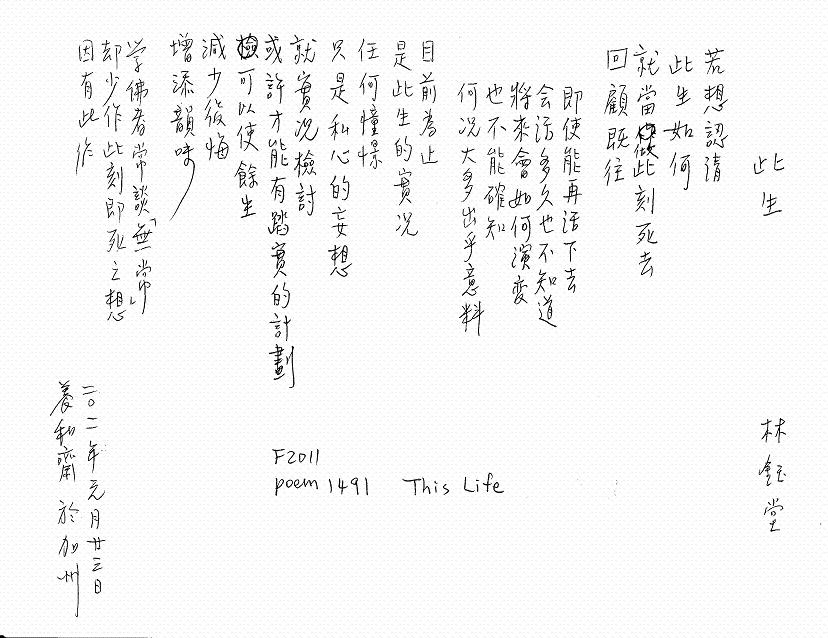 此生
林鈺堂
若想認清
此生如何
就當做此刻死去
回顧既往
即使能再活下去
会活多久也不知道
將來會如何演變
也不能確知
何况大多出乎意料
目前為止
是此生的實况
任何憧憬
只是私心的妄想
就實况檢討
或許才能有踏實的計劃
可以使餘生
減少後悔
增添韻味
学佛者常談「無常」
却少作此刻即死之想
因有此作
二〇一一年元月廿三日
養和齋 於加州
F2011
poem 1491 This Life